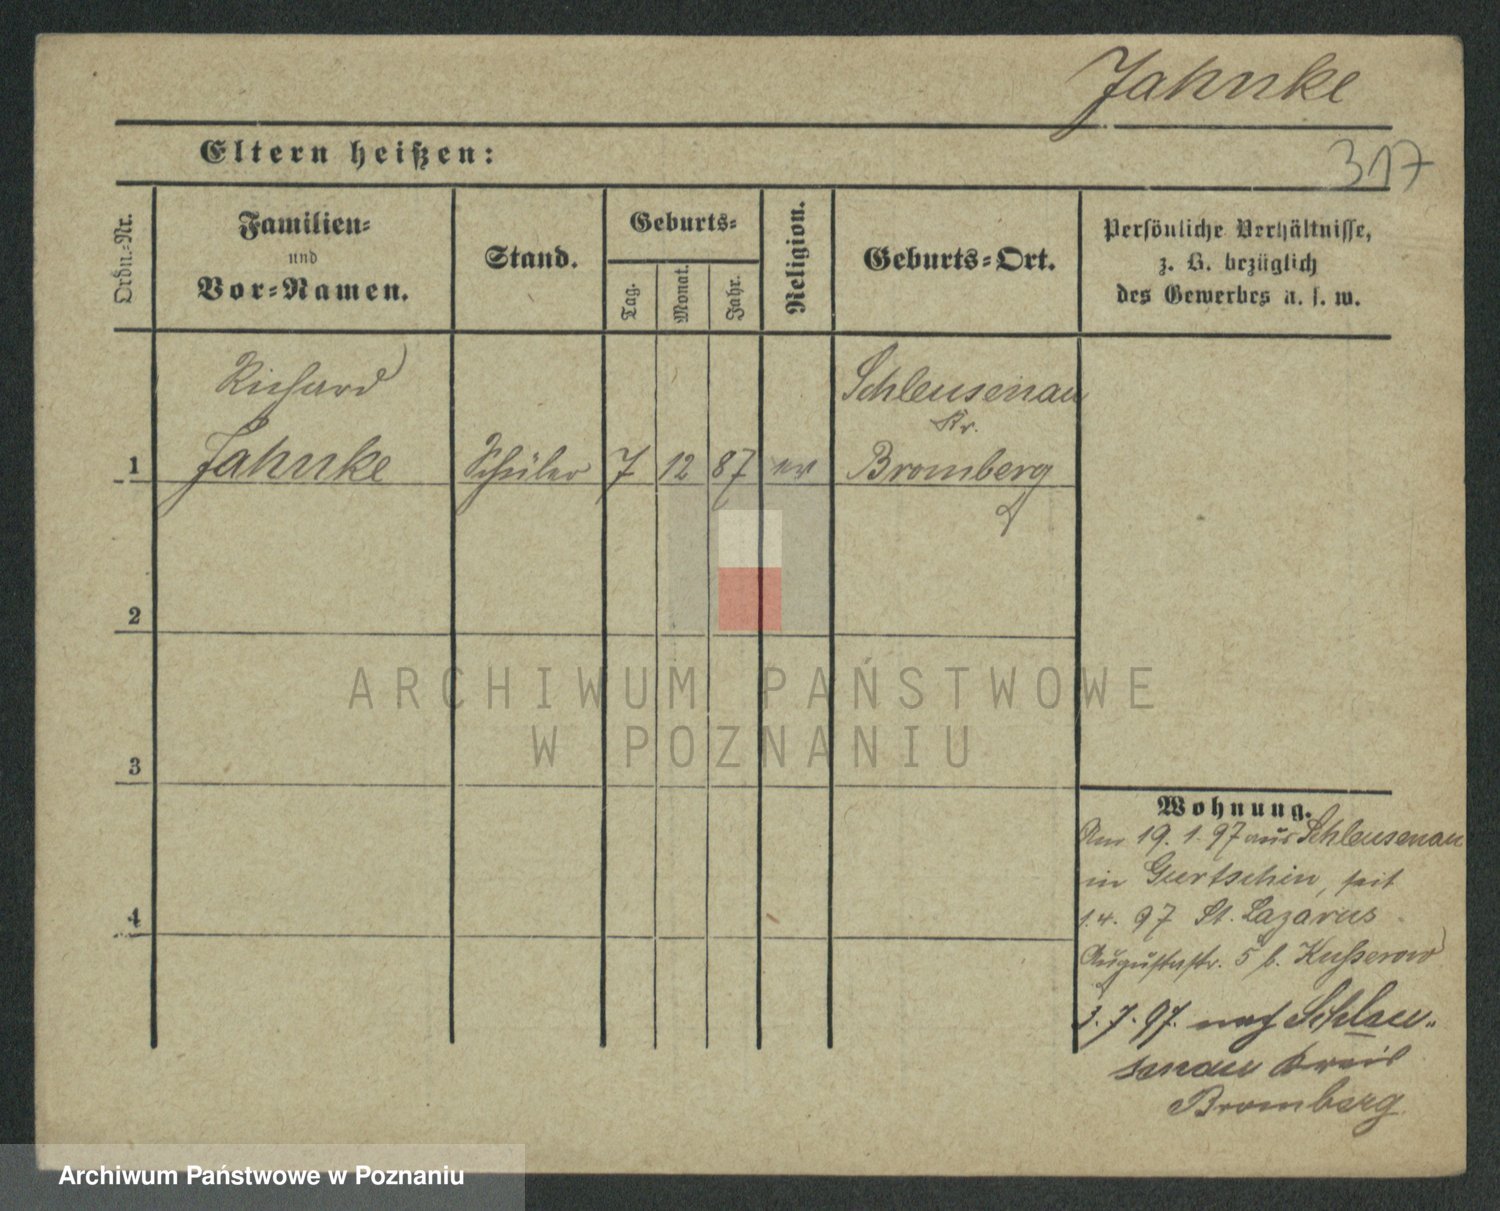 Jahnke
317
Eltern heißen:
Ordn.-Nr.
Familien-
und
Vor-Namen.
Stand.
Geburts-
Tag.
Monat.
Jahr.
Religion.
Geburts-Ort.
Persönliche Verhältnisse,
z. B. bezüglich
des Gewerbes u. s. w.
Richard
Schleusenau
Kr.
1 Jahnke Schüler 7 12 87 ev Bromberg
2
3
4
Wohnung.
Am 19. 1. 97 aus Schleusenau
in Gurtschin, seit
1. 4. 97 St. Lazarus
Augustastr. 5 b. Kusserow
3. 7. 97. nach Schleu-
senau Kreis
Bromberg
ARCHIWUM PAŃSTWOWE
W POZNANIU
Archiwum Państwowe w Poznaniu